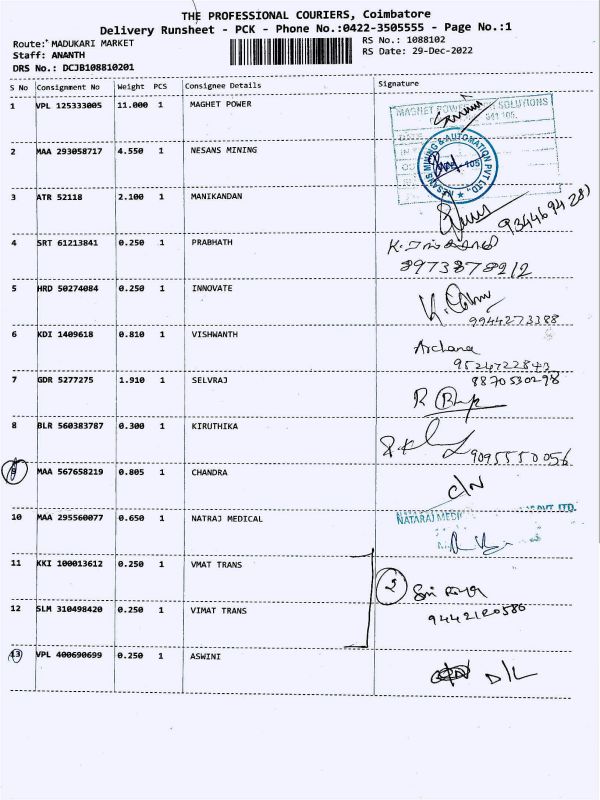 THE PROFESSIONAL COURIERS, Coimbatore
Delivery Runsheet - PCK - Phone No.:0422-3505555 - Page No.:1
Route: MADUKARI MARKET
RS No.: 1088102
Staff: ANANTH
RS Date: 29-Dec-2022
DRS No.: DCJB108810201
S No Consignment No Weight PCS Consignee Details Signature
1 VPL 125333005 11.000 1 MAGHET POWER
MAGNET POWER SOLUTIONS
641 105.
2 MAA 293058717 4.550 1 NESANS MINING
NESANS MINING & AUTOMATION PVT LTD.,
3 ATR 52118 2.100 1 MANIKANDAN
4 SRT 61213841 0.250 1 PRABHATH
8973878212
5 HRD 50274084 0.250 1 INNOVATE
9944273388
6 KDI 1409618 0.810 1 VISHWANTH
Archana
9524722843
7 GDR 5277275 1.910 1 SELVRAJ
8870530298
8 BLR 560383787 0.300 1 KIRUTHIKA
9095550056
9 MAA 567658219 0.805 1 CHANDRA
C/N
10 MAA 295560077 0.650 1 NATRAJ MEDICAL
NATARAJ MEDI PVT. LTD.
11 KKI 100013612 0.250 1 VMAT TRANS
2
12 SLM 310498420 0.250 1 VIMAT TRANS
9442120580
13 VPL 400690699 0.250 1 ASWINI
D/L